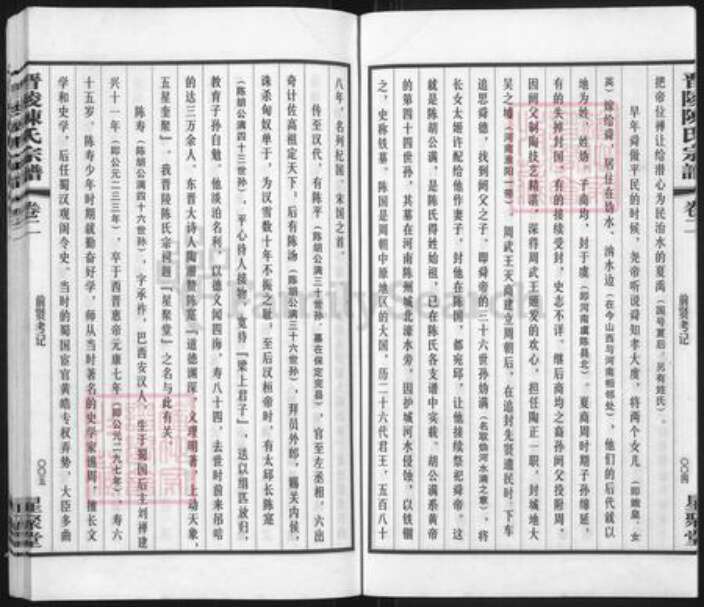 晋陵陈氏宗譜
卷二
前贤考记
〇〇四
星聚堂
把帝位禅让给潜心为民治水的夏禹（国号夏后，另有姓氏）。
早年舜做平民的时候，尧帝听说舜知孝大度，将两个女儿（即娥皇、女
英）嫁给舜，居住在妫水、汭水边（在今山西与河南相邻处），他们的后代就以
地为姓，姓妫。子商均，封于虞（即河南虞陈县北）。夏商周时期子孙绵延，
有的失掉封国，有的接续受封，史志不详。继后商均之裔孙阏父投附周，
因阏父制陶技艺精湛，深得周武王姬发的欢心，担任陶正一职，封城地大
吴之墟（河南淮阳一带）。周武王灭商建立周朝后，在追封先贤遗民时，下车
追思舜德，找到阏父之子，即舜帝的三十六世孙妫满（名取妫河水满之意），将
长女太姬许配给他作妻子，封他在陈国，都宛邱，让他接续祭祀舜帝。这
就是陈胡公满，是陈氏得姓始祖，已在陈氏各支谱中实载。胡公满系黄帝
的第四十四世孙，其墓在河南陈州城北濠水旁，因护城河水侵蚀，以铁锢
之，史称铁墓。陈国是周朝中原地区的大国，历二十六代君王，五百八十
八年，名列杞国、宋国之首。
传至汉代，有陈平（陈胡公满三十世孙，墓在保定完县），官至左丞相，六出
奇计佐高祖定天下。后有陈汤（陈胡公满三十六世孙），拜员外郎，赐关内侯，
诛杀匈奴单于，为汉雪数十年不振之耻。至后汉桓帝时，有太邱长陈寔
（陈胡公满四十三世孙），平心待人接物，宽待『梁上君子』，送以绢匹放归，
教育子孙自勉。他淡泊名利，以德义闻四海，寿八十四，去世时前来吊唁
的达三万余人，东晋大诗人陶渊明赞陈寔『道德渊深，义理明著，上动天象，
五星奎聚』。我晋陵陈氏宗祠题『星聚堂』之名与此有关。
陈寿（陈胡公满四十六世孙），字承祚，巴西安汉人，生于蜀国后主刘禅建
兴十一年（即公元二三三年），卒于西晋惠帝元康七年（即公元二九七年），寿六
十五岁。陈寿少年时期就勤奋好学，师从当时著名的史学家谯周，擅长文
学和史学。后任蜀汉观阁令史。当时的蜀国宦官黄皓专权弄势，大臣多曲
晋陵陳氏宗譜
卷二
前贤考记
〇〇五
星聚堂